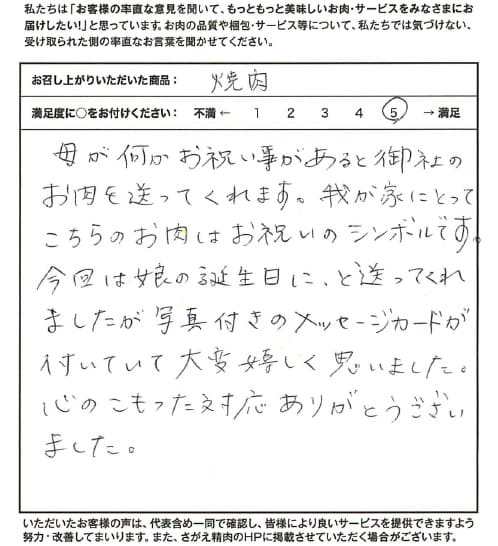 私たちは「お客様の率直な意見を聞いて、もっともっと美味しいお肉・サービスをみなさまにお
届けしたい！」と思っています。お肉の品質や梱包・サービス等について、私たちでは気づけない、
受け取られた側の率直なお言葉を聞かせてください。
お召し上がりいただいた商品： 焼肉
満足度に○をお付けください： 不満 ← 1 2 3 4 5 → 満足
母が何かお祝い事があると御社の
お肉を送ってくれます。我が家にとって
こちらのお肉はお祝いのシンボルです。
今回は娘の誕生日に、と送ってくれ
ましたが写真付きのメッセージカードが
付いていて大変嬉しく思いました。
心のこもった対応ありがとうござい
ました。
いただいたお客様の声は、代表含め一同で確認し、皆様により良いサービスを提供できますよう
努力・改善してまいります。また、さがえ精肉のHPに掲載させていただく場合がございます。